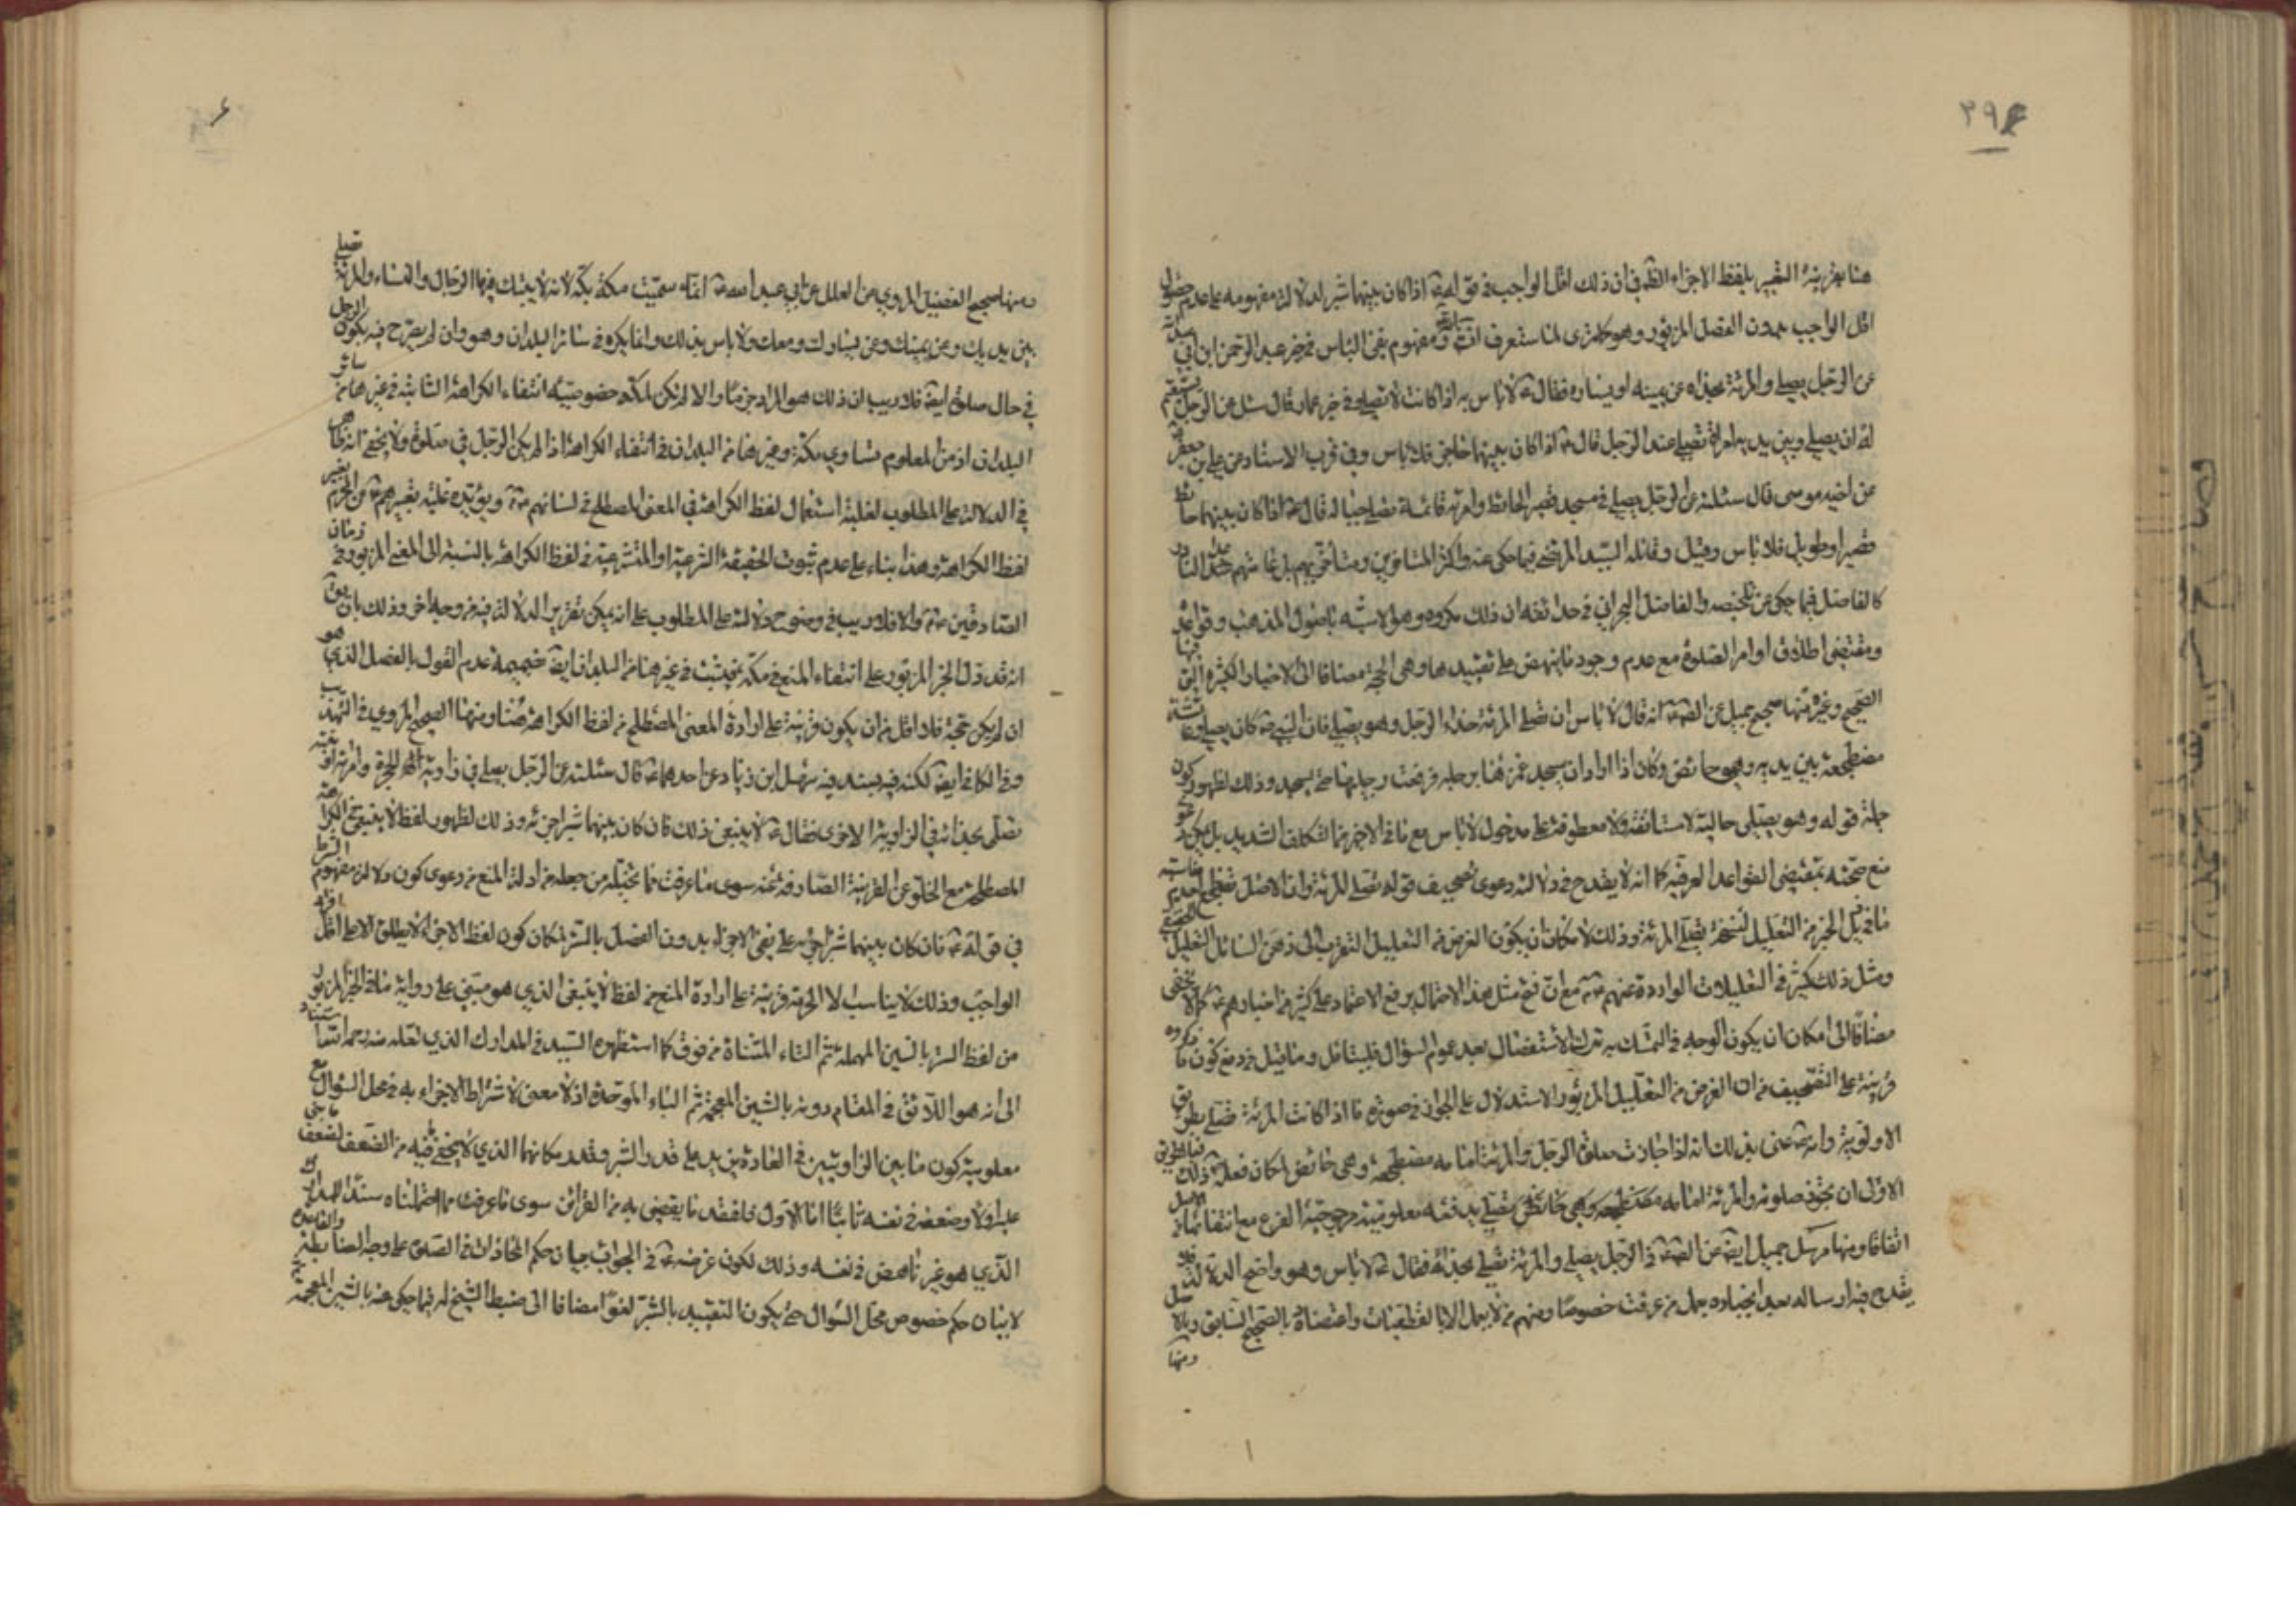 ٢٩٤
هنا بقرينة التعبير بلفظ الاجزاء الظ في ان ذلك اقل الواجب في قوله اذا كان بينهما شبر لدلالة مفهومه على عدم حصول
اقل الواجب بدون الفصل المزبور وهو كما ترى لما ستعرف انش ومفهوم نفى الباس في خبر عبد الرحمن ابن ابي عبد الله
عن الرجل يصلي والمرئة بحذاه عن يمينه او يساره فقال ع لا باس به اذا كانت لا تصلي وفي خبر عمار قال سئل عن الرجل يستقيم
له ان يصلي وبين يديه امراة تصلي عند الرجل قال ع اذا كان بينهما حاجز فلا باس وفي قرب الاسناد عن علي بن جعفر
عن اخيه موسى قال سئلته عن الرجل يصلي في مسجد قصير الحائط وامرئة قائمة تصلي بحياله قال ع اذا كان بينهما حائط
قصير او طويل فلا باس وقيل وقائله السيد المرتضى فيما حكى عنه واكثر المتاخرين ومتاخريهم بل عامتهم عدا النادر
كالفاضل فيما حكى عن تلخيصه والفاضل البحراني في حدائقه ان ذلك مكروه وهو الاشبه باصول المذهب وقواعده
ومقتضى اطلاق اوامر الصلوة مع عدم وجود ما ينهض على تقييدها وهي الحجة مضافا الى الاخبار الكثيرة التي فيها
الصحيح وغيره منها صحيح جميل عن الص ع انه قال لا باس ان تصلي المرئة حذاء الرجل وهو يصلي فان النبي ص كان يصلي وعائشة
مضطجعة بين يديه وهي حائض وكان اذا اراد ان يسجد غمز رجليها فرفعت رجليها حتى يسجد وذلك لظهور كون
جملة قوله وهو يصلى حالية لا مستانفة ولا معطوفة على مدخول لا باس مع ما في الاخير من التكلف الشديد بل يمكن دعوى
منع صحته بمقتضى القواعد العرفية كما انه لا يقدح في دلالته دعوى تصحيف قوله تصلي المرئة وان الاصل
ما في ذيل الخبر من التعليل لنسخة تصلي المرئة وذلك لامكان ان يكون الغرض من التعليل التقريب الى ذهن السائل
ومثل ذلك كثير في التعليلات الواردة عنهم ع مع ان فتح مثل هذا الاحتمال يرفع الاعتماد على كثير من اخبارهم ع كما لا يخفى
مضافا الى امكان ان يكون الوجه في التمسك به ترك الاستفصال بعد عموم السؤال فليتامل وما قيل في دفع كون ما ذكروه
قرينة على التصحيف من ان الغرض من التعليل المزبور الاستدلال على الجواز في صورة ما اذا كانت المرئة تصلي بطريق
الاولوية وانه ع عنى بذلك انه اذا جازت صلوة الرجل والمرئة امامه مضطجعة وهي حائض لكان فعله ذلك
الاول ان يجوز صلوته والمرئة امامه وهي تصلي يدفعه معلومية مرجوحية الفرع مع انتفائها في الاصل
اتفاقا ومنها مرسل جميل ايض عن الص ع في الرجل يصلي والمرئة تصلي بحذائه فقال ع لا باس وهو واضح الدلالة
يقدح فيه ارساله بعد انجباره بعمل من عرفت خصوصا ومنهم من لا يعمل الا بالقطعيات واعتضاده بالصحيح السابق
ومنها
ومنها صحيح الفضيل المروي عن العلل عن ابي عبد الله ع انما سميت مكة بكة لانه لا يبتك فيها الرجال والنساء والمرئة تصلي
بين يديك وعن يمينك وعن يسارك ومعك ولا باس بذلك وانما يكره في سائر البلدان وهو وان لم يصرح فيه بكون الرجل
في حال صلوة ايض فلا ريب ان ذلك هو المراد جزما والا لم يكن لمكة خصوصية انتفاء الكراهة الثابتة في غيرها من سائر
البلدان اذ من المعلوم تساوي مكة وغيرها من البلدان في انتفاء الكراهة اذا لم يكن الرجل في صلوة ولا يخفى انه ظاهر
في الدلالة على المطلوب لغلبة استعمال لفظ الكراهة في المعنى المصطلح في لسانهم ع ويؤيده غلبة تعبيرهم ع عن الحرام بغير
لفظ الكراهة وهذا بناء على عدم ثبوت الحقيقة الشرعية او المتشرعية في لفظ الكراهة بالنسبة الى المعنى المزبور في زمان
الصادقين ع والا فلا ريب في وضوح دلالته على المطلوب على انه يمكن تقرير الدلالة فيه من وجه اخر وذلك بان يق
انه قد دل الخبر المزبور على انتفاء المنع في مكة فيثبت في غيرها من البلدان ايض بضميمة عدم القول بالفصل الذي هو
ان لم يكن حجة فلا اقل من ان يكون قرينة على ارادة المعنى المصطلح من لفظ الكراهة هنا ومنها الصحيح المروي في التهذيب
وفي الكافي ايض لكنه فيه بسند فيه سهل ابن زياد عن احدهما ع قال سئلته عن الرجل يصلي في زاوية الحجرة وامرئة او بنته
تصلي بحذائه في الزاوية الاخرى فقال ع لا ينبغي ذلك فان كان بينهما شبر اجزئه وذلك لظهور لفظ لا ينبغي في الكراهة
المصطلحة مع الخلو عن القرينة الصارفة عنه سوى ما عرفت مما تخيله من جعله من ادلة المنع من دعوى كون دلالة مفهوم الشرط
في قوله ع فان كان بينهما شبر اجزئه على نفي الاجزاء بدون الفصل بالشبر لمكان كون لفظ الاجزاء لا يطلق الا على اقل افراد
الواجب وذلك لا يناسب الا الحرمة قرينة على ارادة المنع من لفظ لا ينبغي الذي هو مبني على رواية ما في الخبر المزبور
من لفظ الستر بالسين المهملة ثم التاء المثناة من فوق كما استظهره السيد في المدارك الذي نقله عنه جماعة استنادا
الى انه هو اللائق في المقام دونه بالشين المعجمة ثم الباء الموحدة اذ لا معنى لاشتراط الاجزاء به في محل السؤال مع
معلومية كون ما بين الزاويتين في العادة يزيد على قدر الشبر وقدر مكانهما الذي لا يخفى ما فيه من الضعف
عليه اولا وضعفه في نفسه ثانيا اما الاول فلفقد ما يقضى به من القرائن سوى ما عرفت مما جعلناه سندا للمدارك
الذي هو غير ناهض في نفسه وذلك لكون غرضه ع في الجواب بيان حكم المحاذات في الصلوة على وجه الضابطة
لا بيان حكم خصوص محل السؤال حتى يكون التقييد بالشبر لغوا مضافا الى ضبط الشيخ له فيما حكى عنه بالشين المعجمة